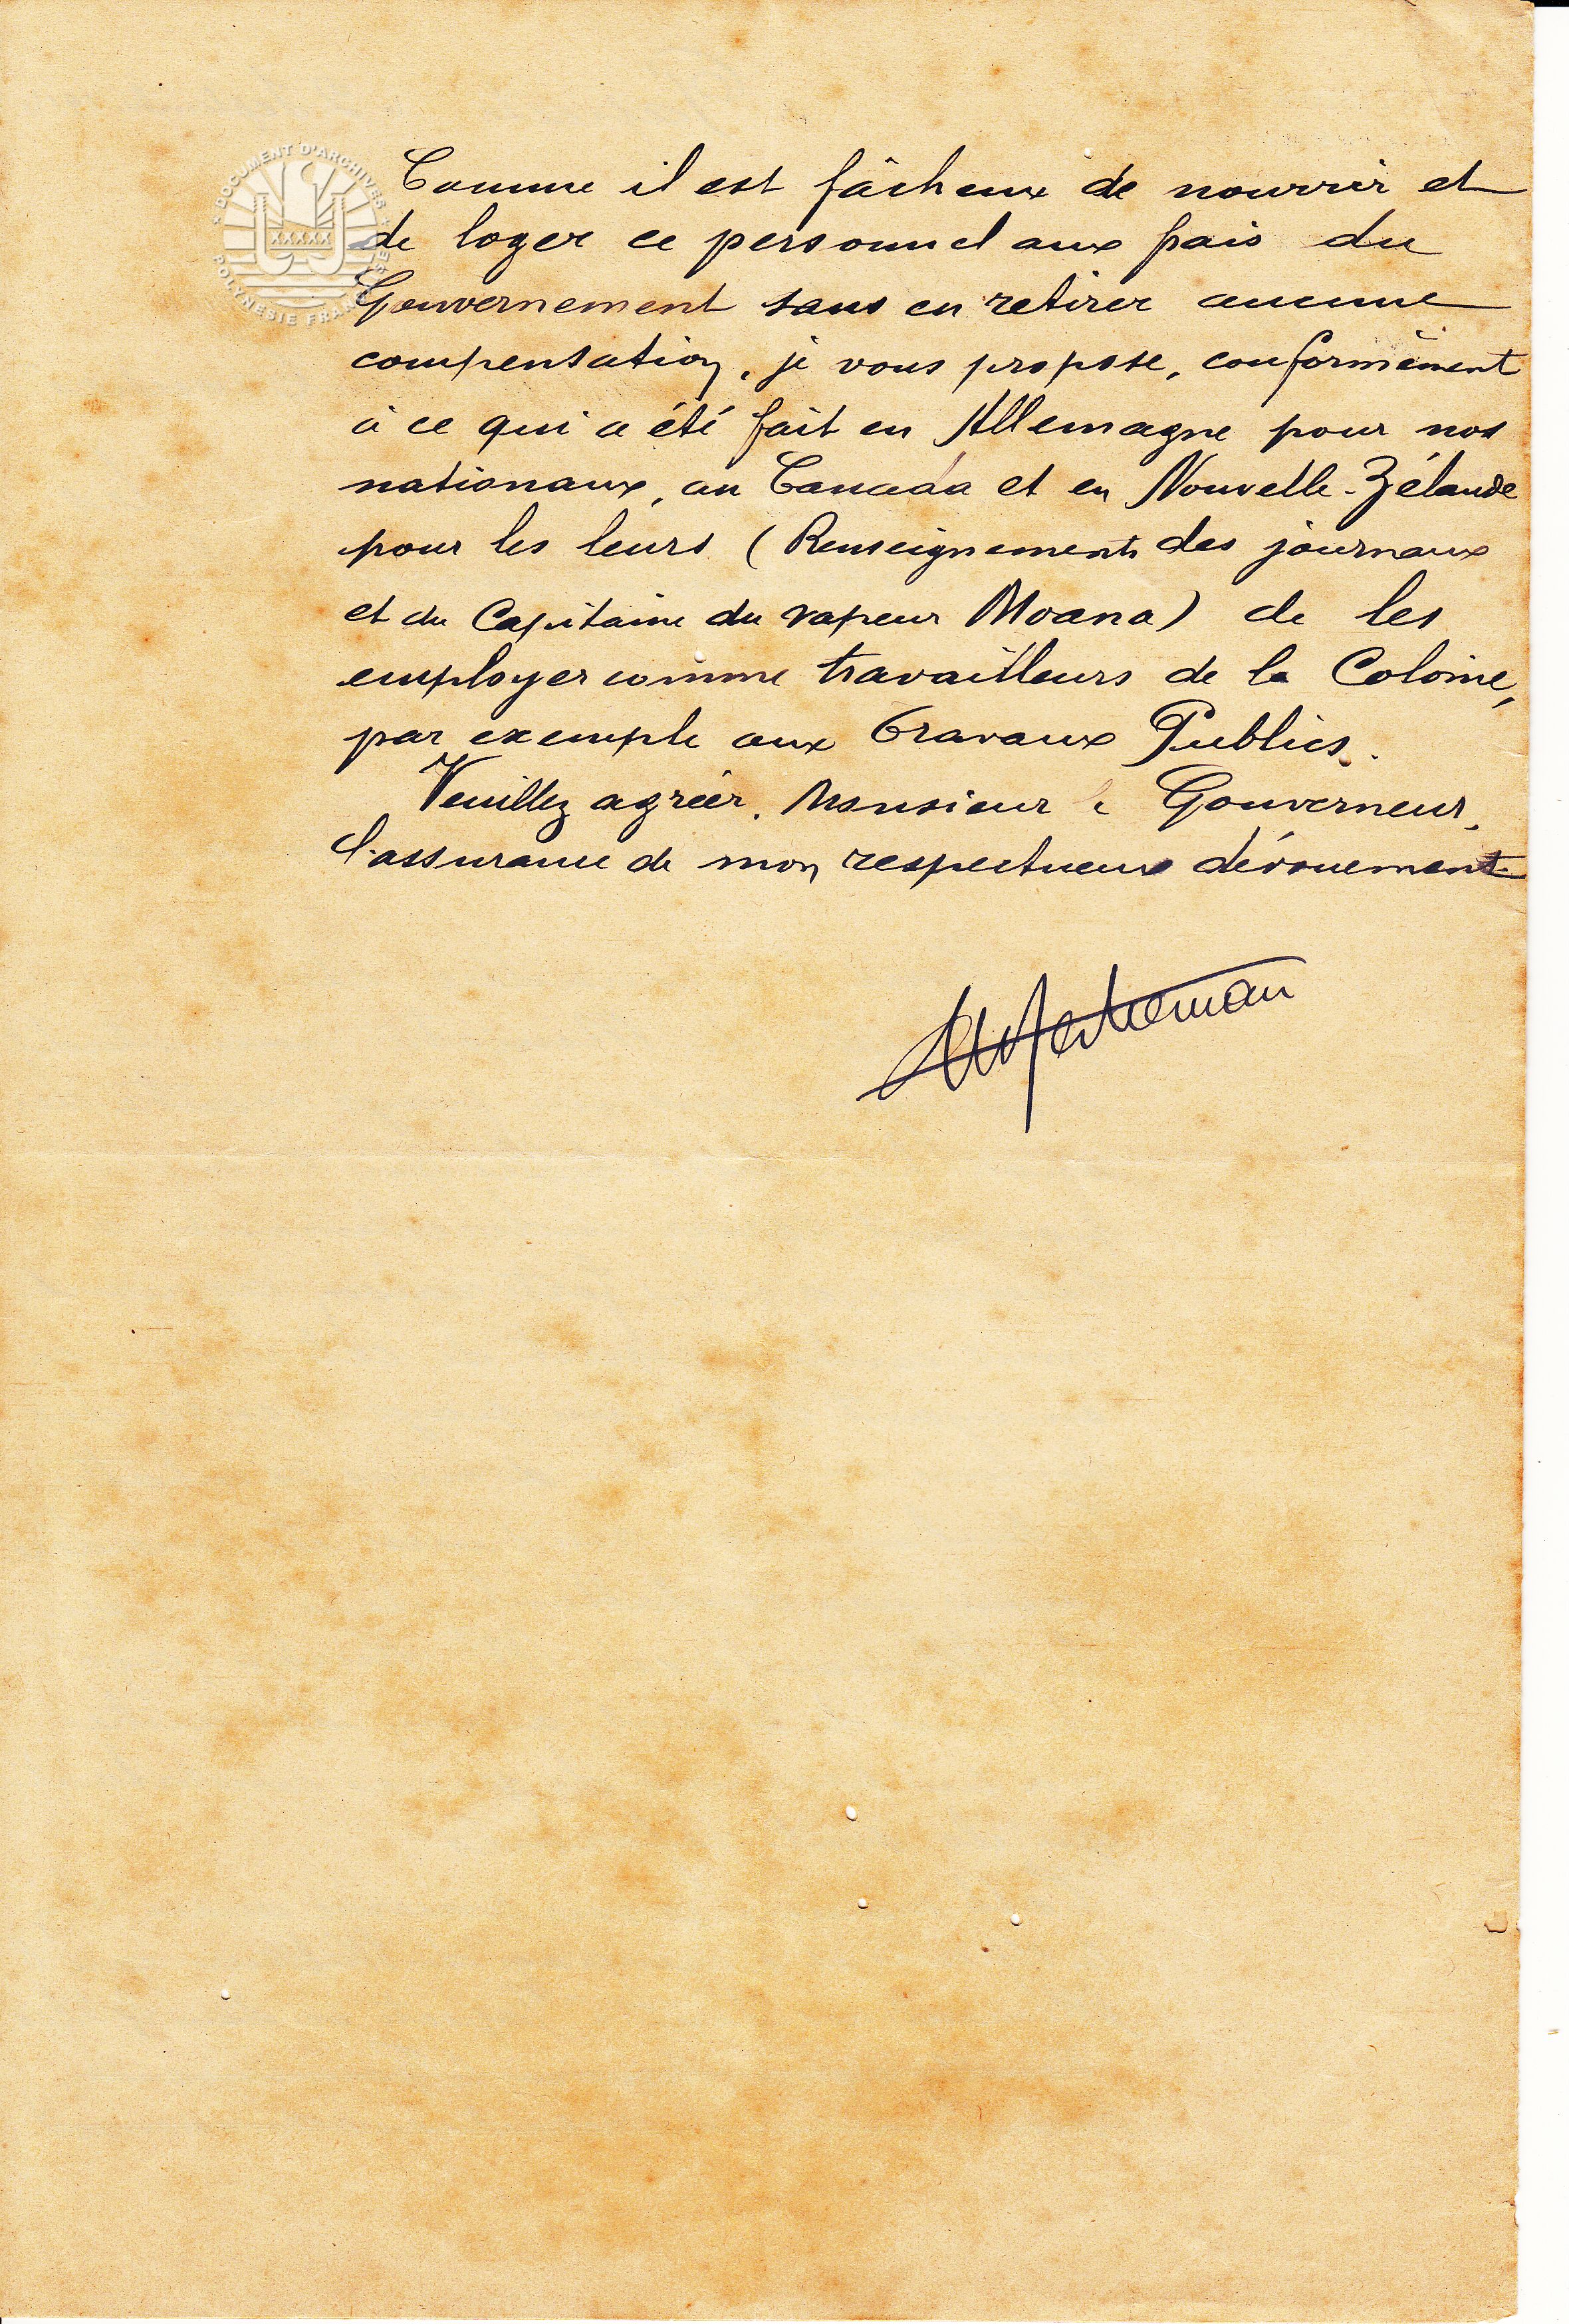 DOCUMENT D'ARCHIVES
POLYNESIE FRANÇAISE
Comme il est fâcheux de nourrir et
de loger ce personnel aux frais du
Gouvernement sans en retirer aucune
compensation, je vous propose, conformément
à ce qui a été fait en Allemagne pour nos
nationaux, au Canada et en Nouvelle-Zélande
pour les leurs (Renseignements des journaux
et du Capitaine du vapeur Moana) de les
employer comme travailleurs de la Colonie,
par exemple aux Travaux Publics.
Veuillez agréer, Monsieur le Gouverneur,
l'assurance de mon respectueux dévouement.